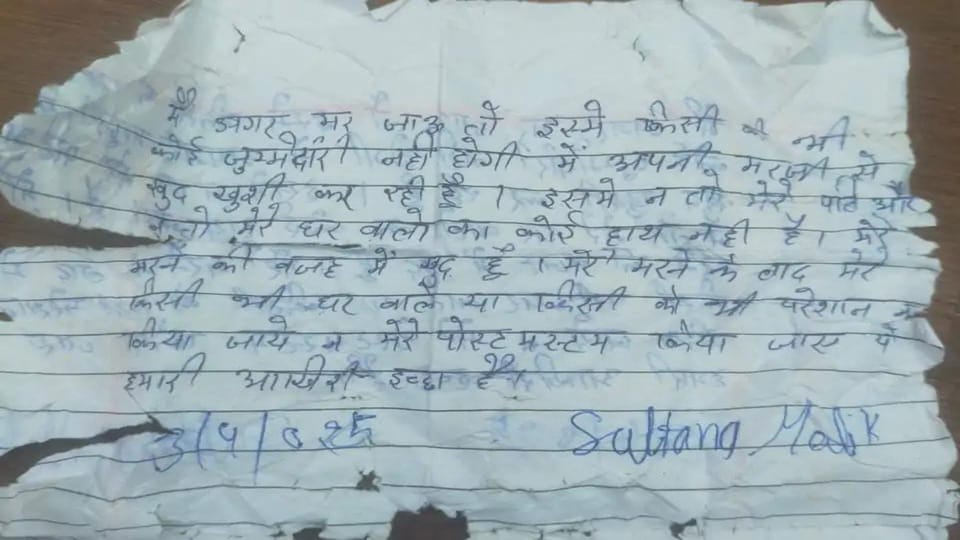 मैं अगर मर जाऊ तो इसमे किसी की भी
कोई जुम्मेदारी नही होगी में अपनी मरजी से
खुद खुशी कर रही हूँ । इसमे न तो मेरे पति और
न तो मेरे घर वालो का कोई हाथ नही है । मेरे
मरने की वजह में खुद हूँ । मेरे मरने के बाद मेरे
किसी भी घर वाले या किसी को भी परेशान न
किया जाये न मेरे पोस्टमस्टम किया जाए ये
हमारी आखिरी इच्छा है ।
Sultana Malik